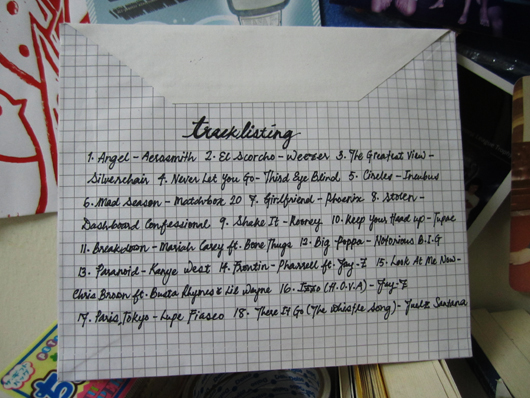 tracklisting
1. Angel - Aerosmith 2. El Scorcho - Weezer 3. The Greatest View -
Silverchair 4. Never Let You Go - Third Eye Blind 5. Circles - Incubus
6. Mad Season - Matchbox 20 7. Girlfriend - Phoenix 8. Stolen -
Dashboard Confessional 9. Shake It - Rooney 10. Keep Your Head up - Tupac
11. Breakdown - Mariah Carey ft. Bone Thugs 12. Big Poppa - Notorious B.I.G
13. Paranoid - Kanye West 14. Frontin - Pharrell ft. Jay-Z 15. Look At Me Now -
Chris Brown ft. Busta Rhymes & Lil Wayne 16. Izzo (H.O.V.A) - Jay-Z
17. Paris, Tokyo - Lupe Fiasco 18. There It Go (The Whistle Song) - Juelz Santana